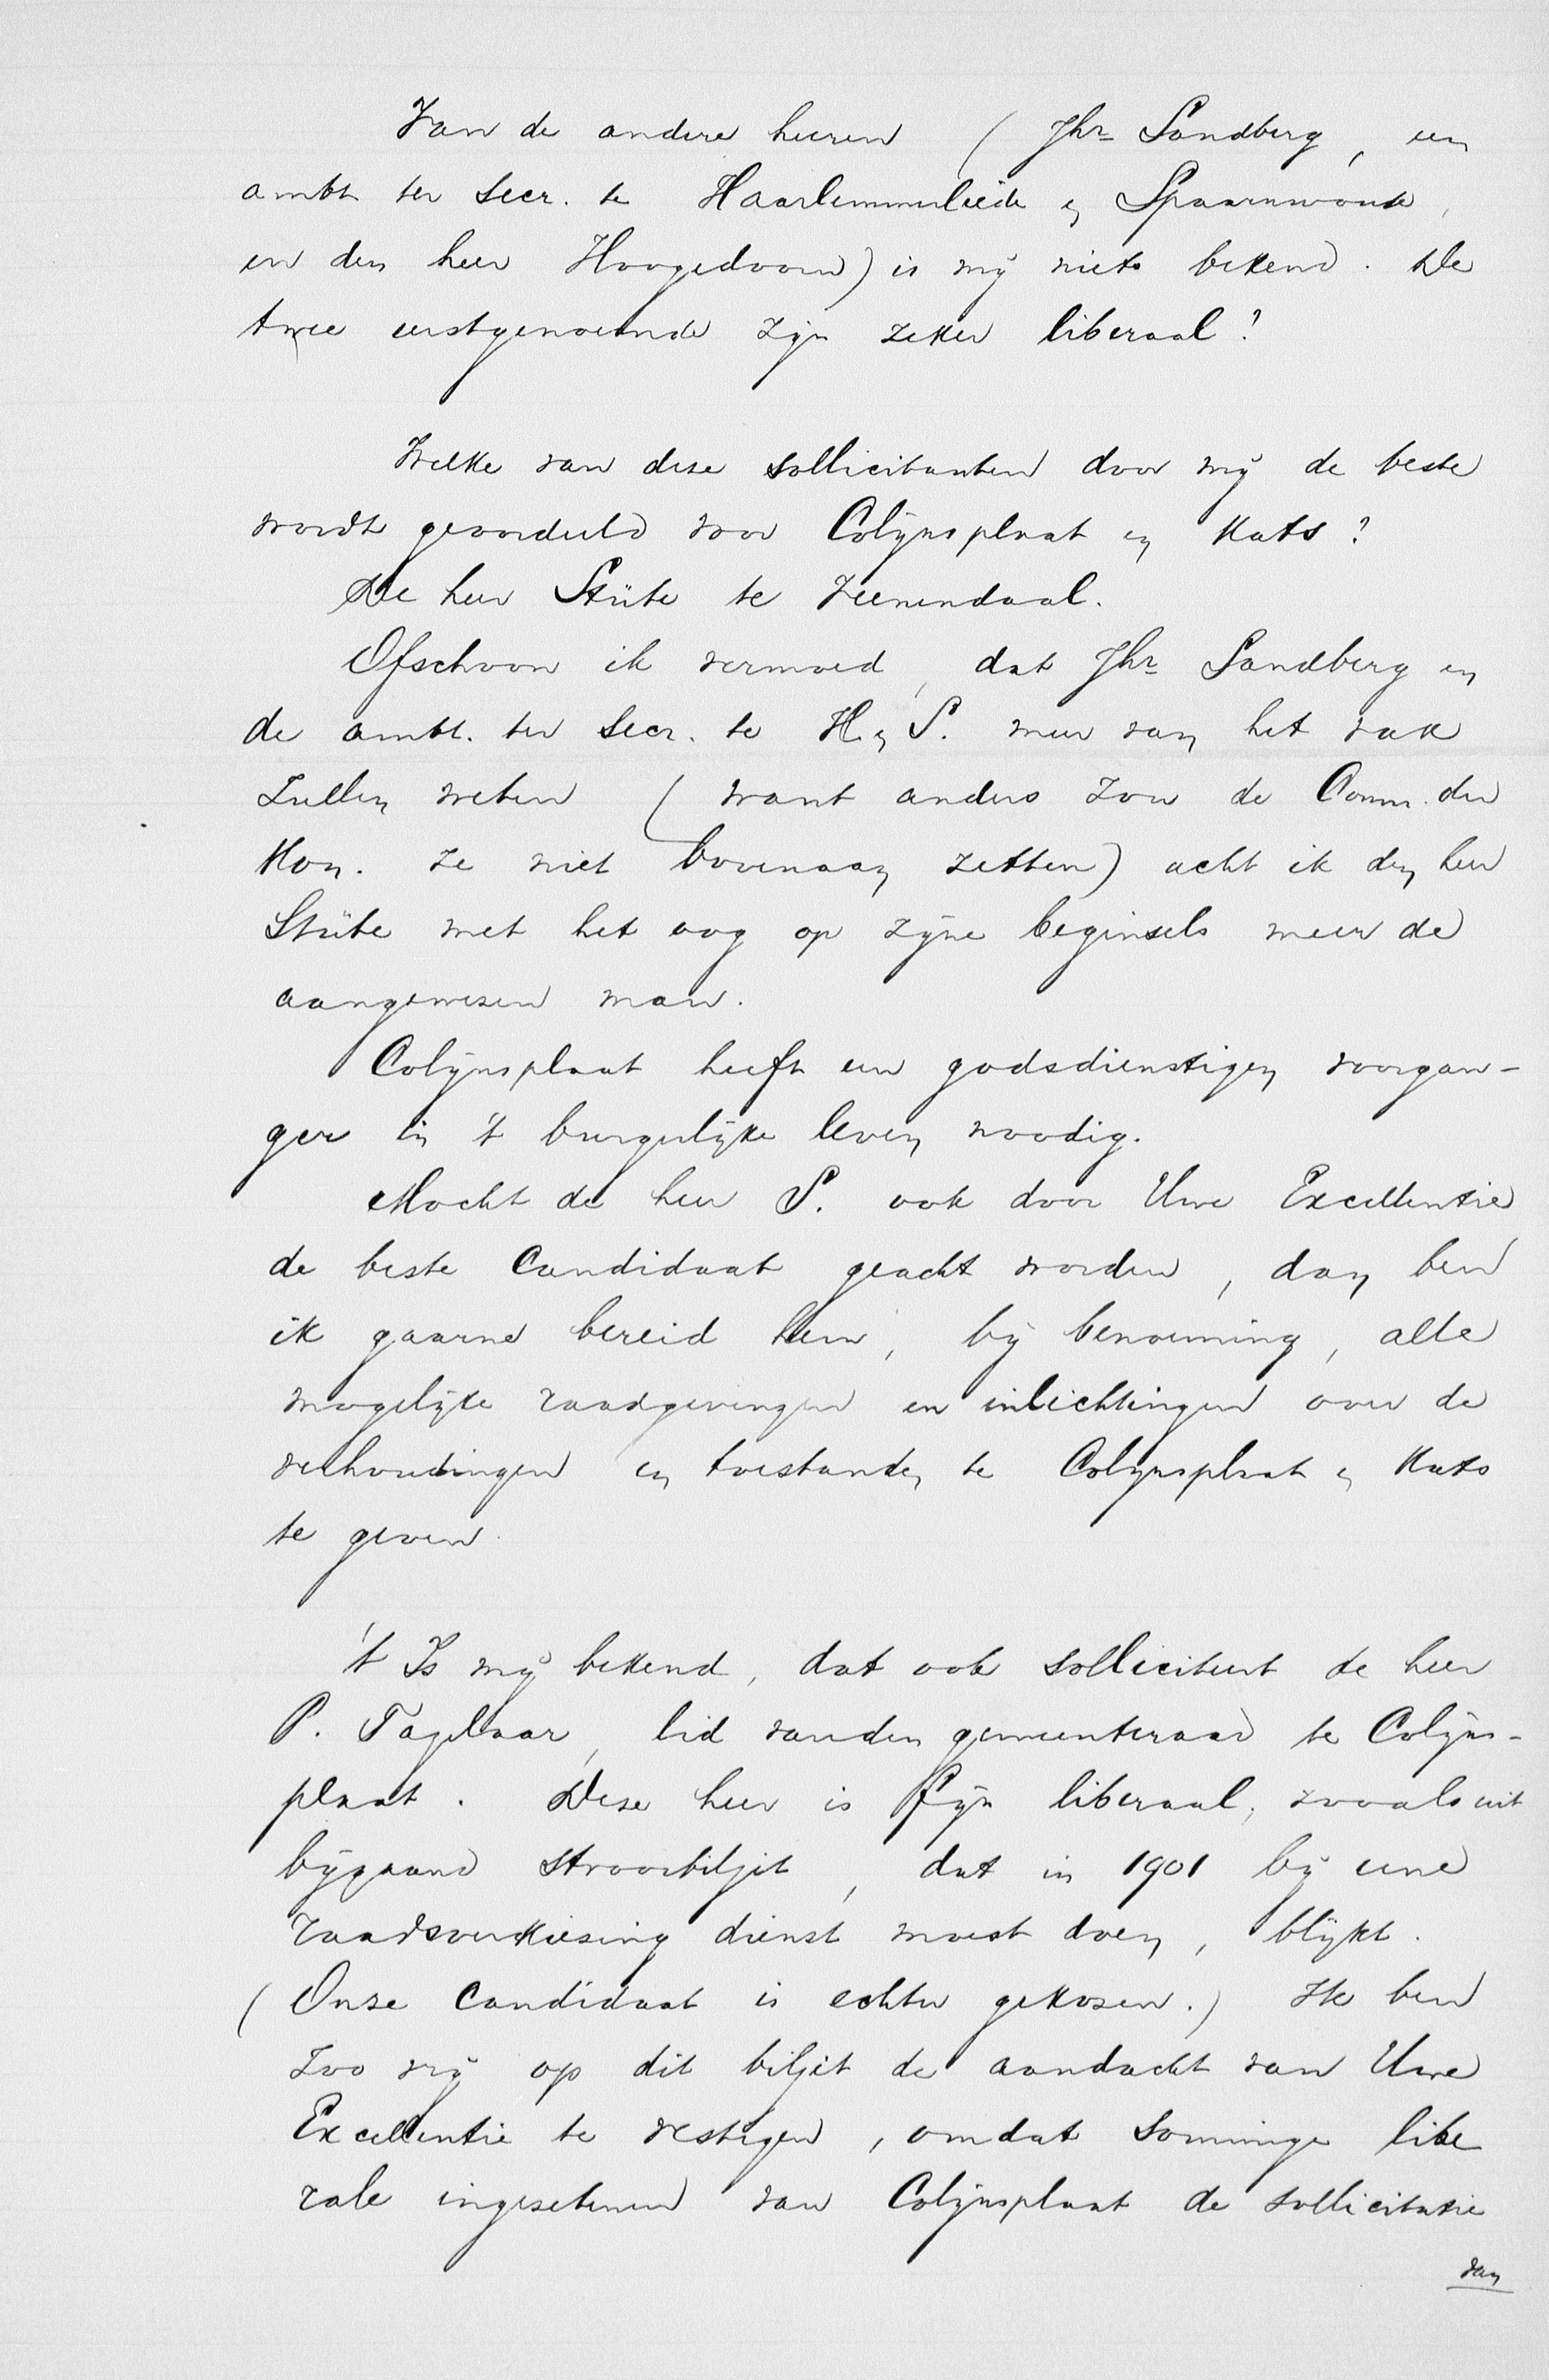 Van de andere heeren (Jhr Sandberg, een
ambt. ter secr. te Haarlemmerliede en Spaarnwoude,
en den heer Hoogedoorn) is mij niets bekend. De
twee eerstgenoemde zijn zeker liberaal?
Welke van deze sollicitanten door mij de beste
wordt geoordeeld voor Colijnsplaat en Kats?
De heer Stüte te Veenendaal.
Ofschoon ik vermoed, dat Jhr Sandberg en
de ambt. ter secr. te H. en S. meer van het vak
zullen weten (want anders zou de Comm. der
Kon. ze niet bovenaan zetten) acht ik den heer
Stüte met het oog op zijne beginsels meer de
aangewezen man.
Colijnsplaat heeft een godsdienstigen voorgan-
ger in 't burgerlijke leven noodig.
Mocht de heer S. ook door Uwe Excellentie
de beste Candidaat geacht worden, dan ben
ik gaarne bereid hem, bij benoeming, alle
mogelijke raadgevingen en inlichtingen over de
verhoudingen en toestanden te Colijnsplaat en Kats
te geven.
't Is mij bekend, dat ook solliciteert de heer
P. Tazelaar, lid van den gemeenteraad te Colijns-
plaat. Deze heer is fijn liberaal, zooals uit
bijgaand strooibiljet, dat in 1901 bij eene
raadsverkiezing dienst moest doen, blijkt.
(Onze Candidaat is echter gekozen.) Ik ben
zoo vrij op dit biljet de aandacht van Uwe
Excellentie te vestigen, omdat sommige libe
rale ingezetenen van Colijnsplaat de sollicitatie
van